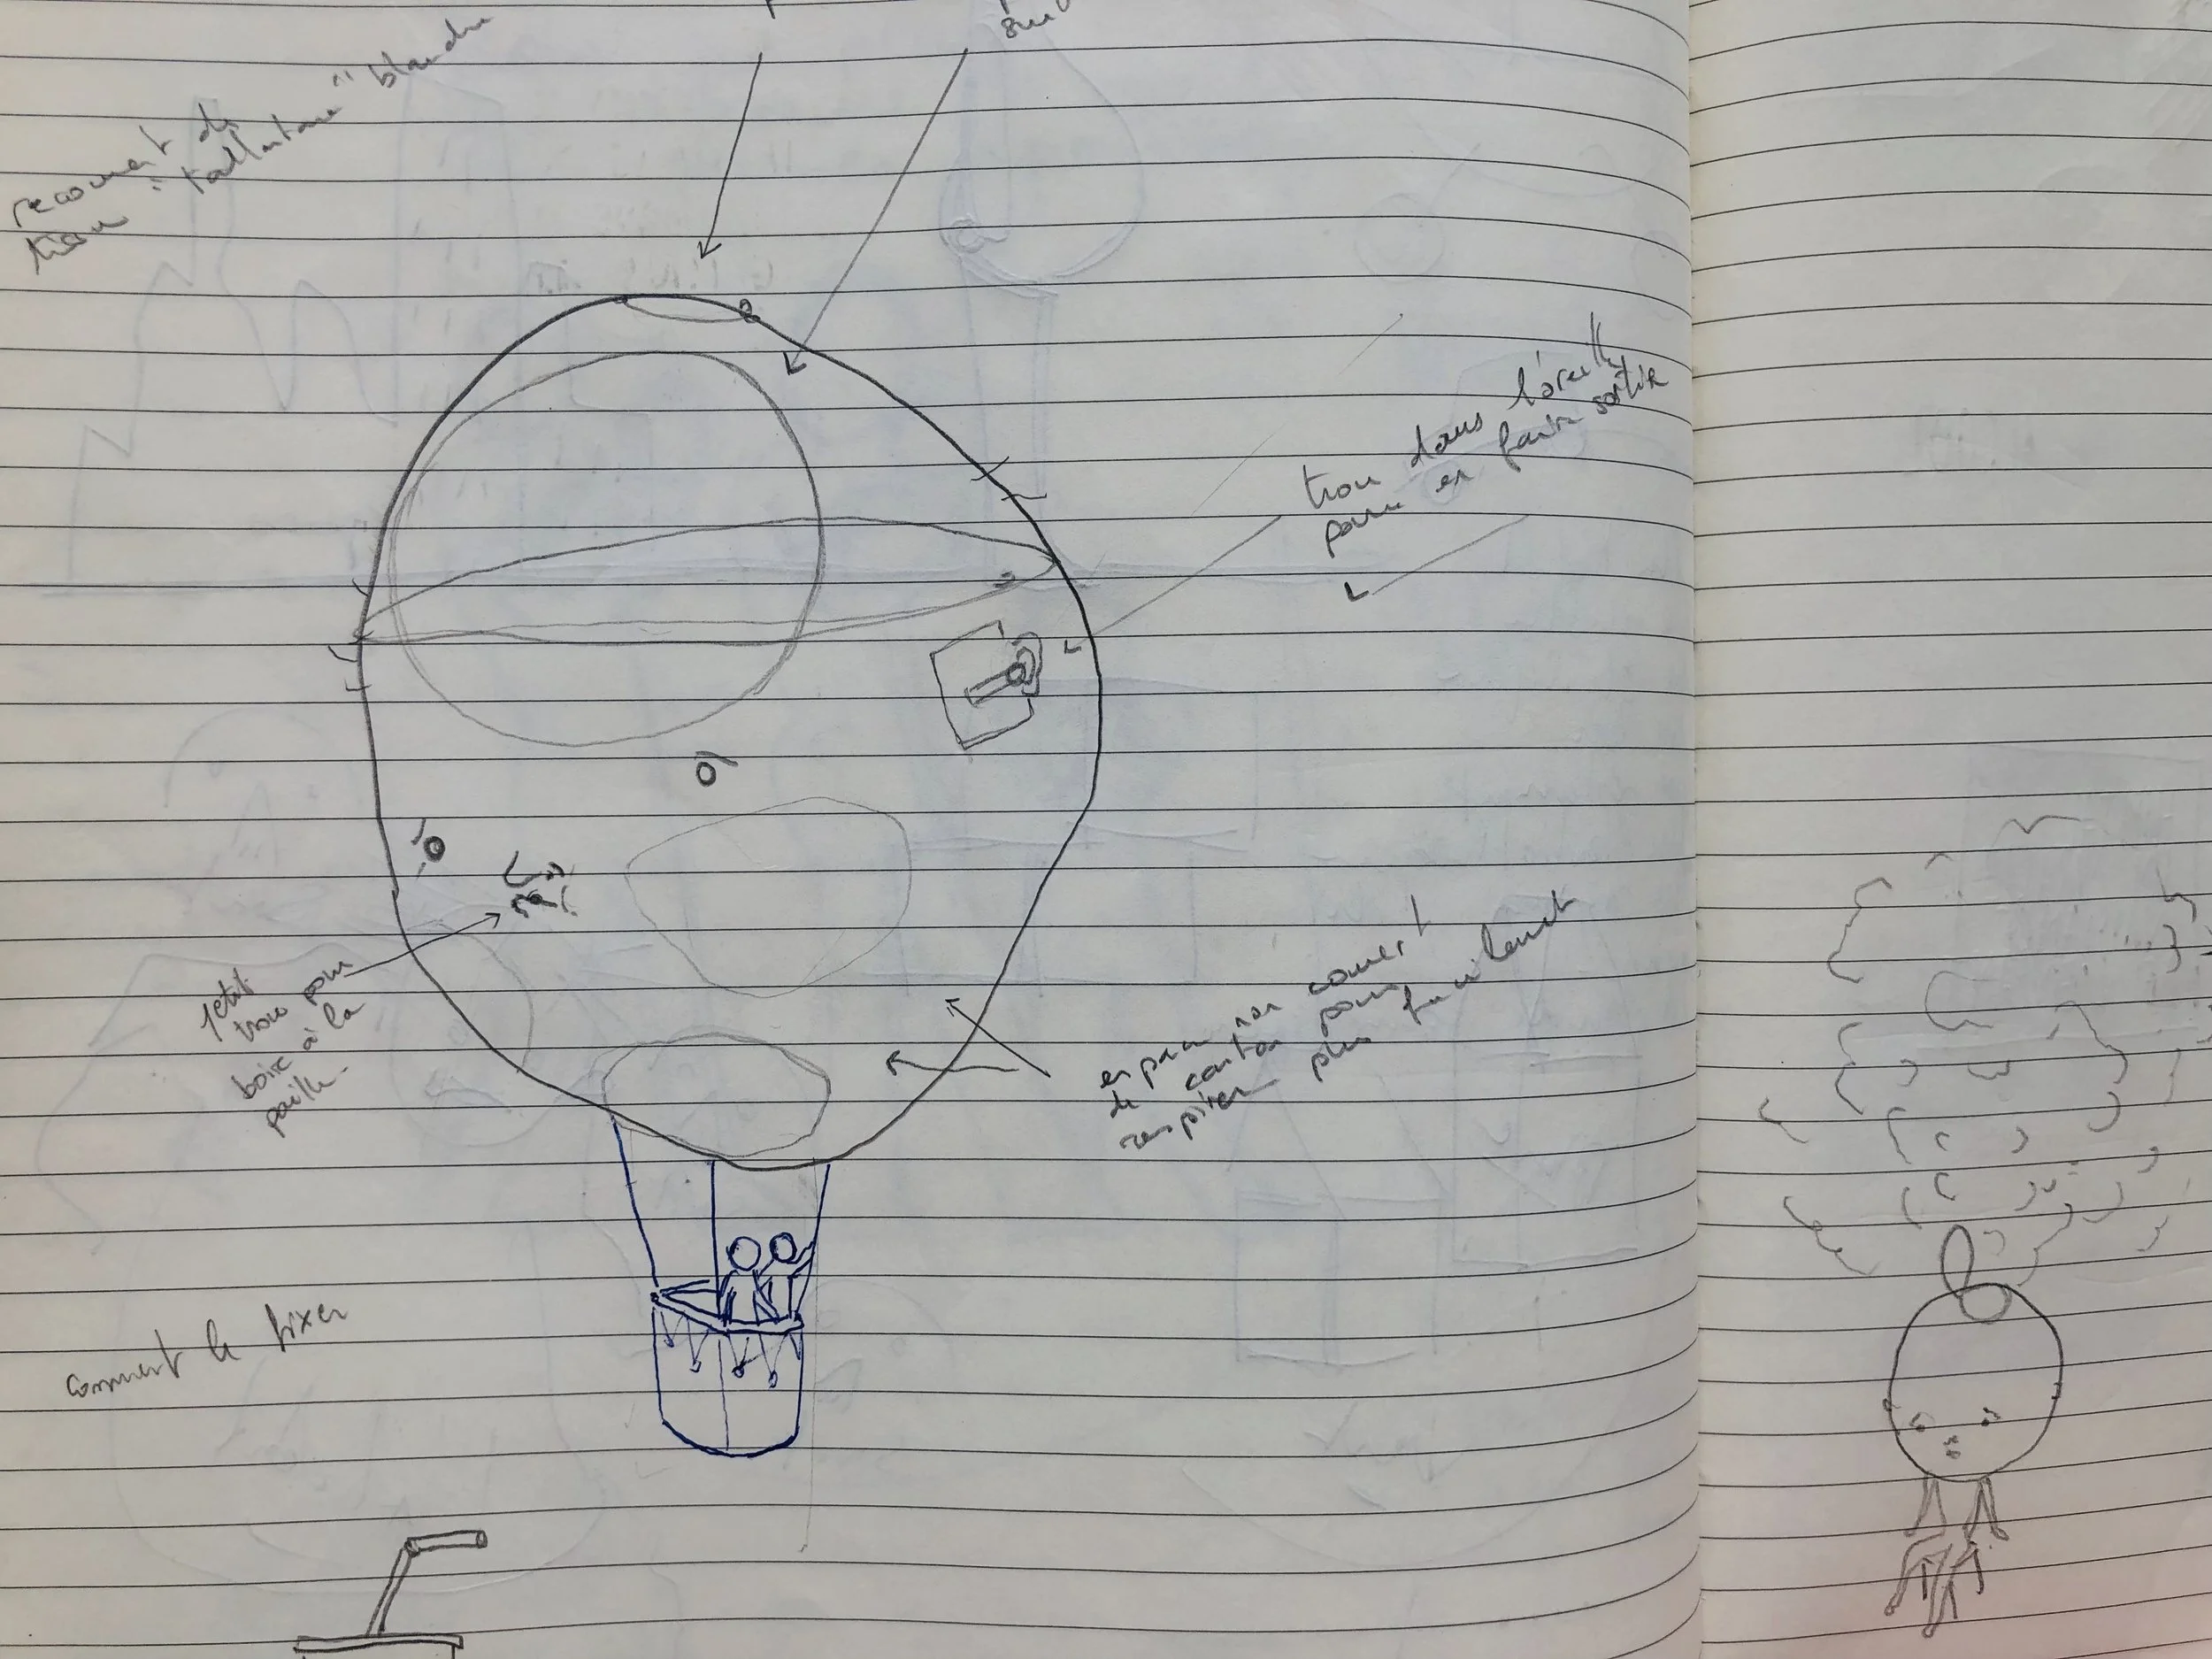 recouvert de
tissu " blanche
trou dans l'oreille
pour en faire sortir
petit
trou pour
boire à la
paille.
en partie non couvert
de carton pour
respirer plus facilement
comment le fixer